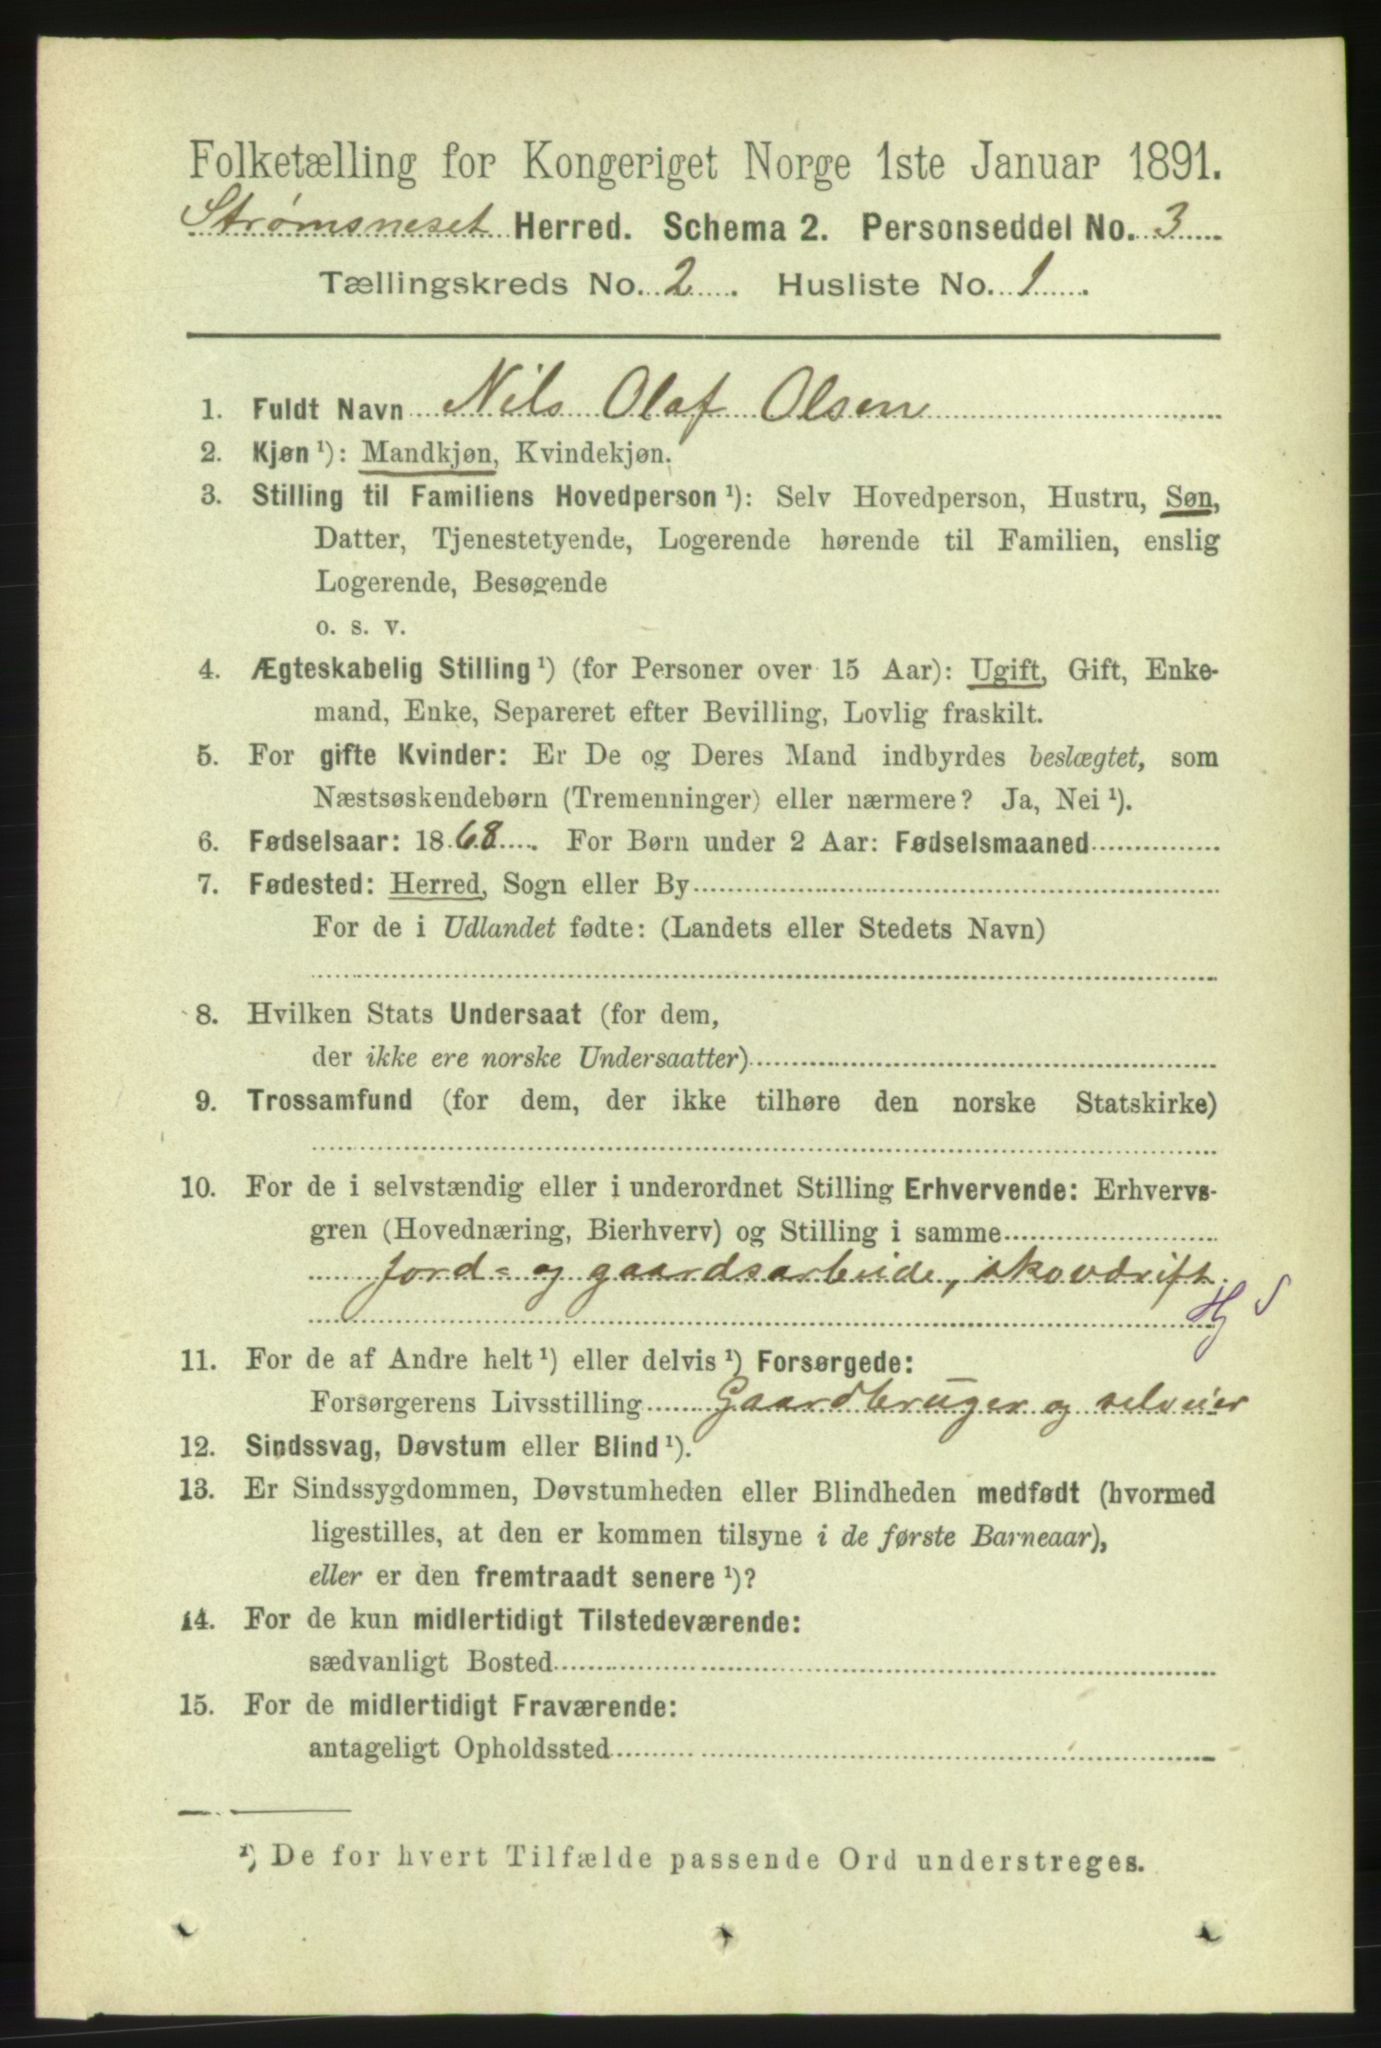 Folketælling for Kongeriget Norge 1ste Januar 1891.
Strømsneset Herred. Schema 2. Personseddel No. 3
Tællingskreds No. 2. Husliste No. 1.
1. Fuldt Navn Nils Olaf Olsen
2. Kjøn ¹): Mandkjøn, Kvindekjøn.
3. Stilling til Familiens Hovedperson ¹): Selv Hovedperson, Hustru, Søn,
Datter, Tjenestetyende, Logerende hørende til Familien, enslig
Logerende, Besøgende
o. s. v.
4. Ægteskabelig Stilling ¹) (for Personer over 15 Aar): Ugift, Gift, Enke-
mand, Enke, Separeret efter Bevilling, Lovlig fraskilt.
5. For gifte Kvinder: Er De og Deres Mand indbyrdes beslægtet, som
Næstsøskendebørn (Tremenninger) eller nærmere? Ja, Nei ¹).
6. Fødselsaar: 1868. For Børn under 2 Aar: Fødselsmaaned
7. Fødested: Herred, Sogn eller By
For de i Udlandet fødte: (Landets eller Stedets Navn)
8. Hvilken Stats Undersaat (for dem,
der ikke ere norske Undersaatter)
9. Trossamfund (for dem, der ikke tilhøre den norske Statskirke)
10. For de i selvstændig eller i underordnet Stilling Erhvervende: Erhvervs-
gren (Hovednæring, Bierhverv) og Stilling i samme
jord- og gaardsarbeide, skovdrift.
Hj S
11. For de af Andre helt ¹) eller delvis ¹) Forsørgede:
Forsørgerens Livsstilling Gaardbruger og selveier
12. Sindssvag, Døvstum eller Blind ¹).
13. Er Sindssygdommen, Døvstumheden eller Blindheden medfødt (hvormed
ligestilles, at den er kommen tilsyne i de første Barneaar),
eller er den fremtraadt senere ¹)?
14. For de kun midlertidigt Tilstedeværende:
sædvanligt Bosted
15. For de midlertidigt Fraværende:
antageligt Opholdssted
¹) De for hvert Tilfælde passende Ord understreges.